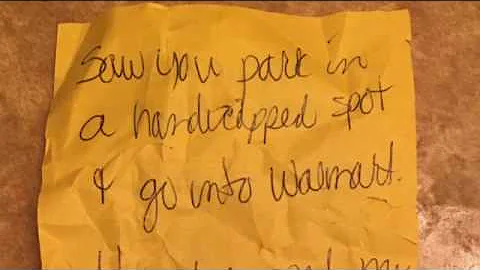 Saw you park in
a handicapped spot
& go into Walmart.
my